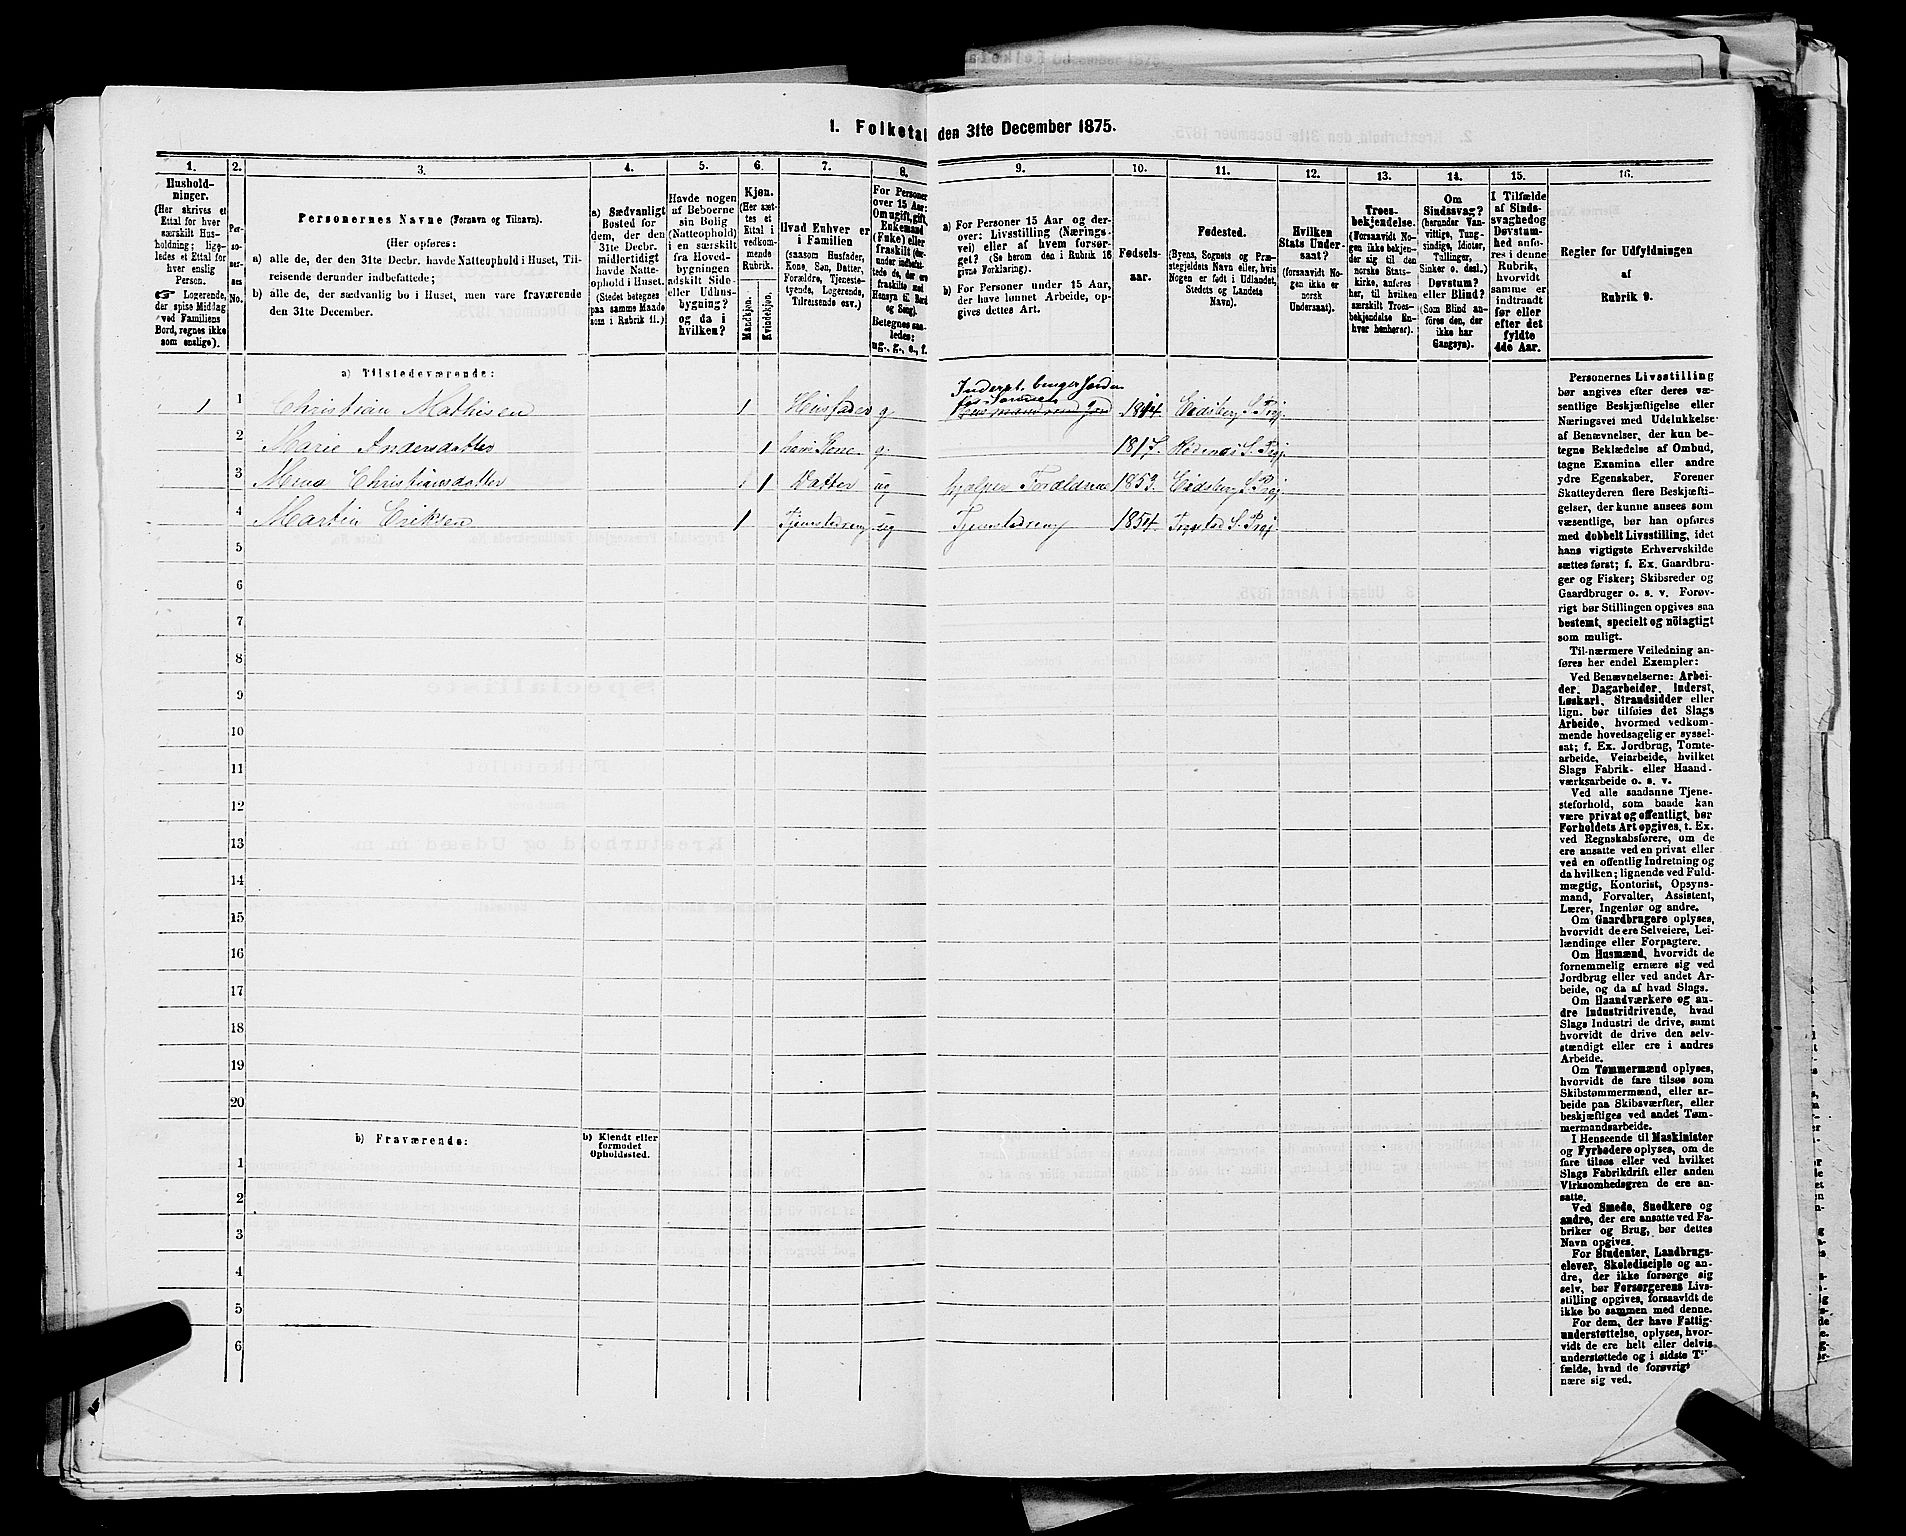 1. Folketal den 31te December 1875.
1.
Hushold-
ninger.
(Her skrives et
Ettal for hver
særskilt Hus-
holdning; lige-
ledes et Ettal for
hver enslig
Person.
☞ Logerende,
der spise Middag
ved Familiens
Bord, regnes ikke
som enslige).
2.
Per-
so-
ner-
nes
No.
3.
Personernes Navne (Fornavn og Tilnavn).
(Her opføres:
a) alle de, der den 31te Decbr. havde Natteophold i Huset, Til-
reisende derunder indbefattede;
b) alle de, der sædvanlig bo i Huset, men vare fraværende
den 31te December.
4.
a) Sædvanligt
Bosted for
dem, der den
31te Decbr.
midlertidigt
havde Natte-
ophold i Huset.
(Stedet betegnes
paa samme Maade
som i Rubrik 11.)
5.
Havde nogen
af Beboerne
sin Bolig
(Natteophold)
i en særskilt
fra Hoved-
bygningen
adskilt Side-
eller Udhus-
bygning?
og da i
hvilken?
6.
Kjøn.
(Her sæt-
tes et
Ettal i
vedkom-
mende
Rubrik.
Mandkjøn.
Kvindekjøn.
7.
Hvad Enhver er
i Familien
(saasom Husfader,
Kone, Søn, Datter,
Forældre, Tjeneste-
tyende, Logerende,
Tilreisende osv.)
8.
For Personer
over 15 Aar:
Om ugift, gift,
Enkemand
(Enke) eller
fraskilt (der-
under indbefat-
tede de, der ere
fraskilte med
Hensyn til Bord
og Seng).
Betegnes saa-
ledes:
ug., g., e., f.
9.
a) For Personer 15 Aar og der-
over: Livsstilling (Nærings-
vei) eller af hvem forsør-
get? (Se herom den i Rubrik 16
givne Forklaring).
b) For Personer under 15 Aar,
der have lønnet Arbeide, op-
gives dettes Art.
10.
Fødsels-
aar.
11.
Fødested.
(Byens, Sognets og Præ-
stegjeldets Navn eller, hvis
Nogen er født i Udlandet,
Stedets og Landets
Navn).
12.
Hvilken
Stats Under-
saat?
(forsaavidt No-
gen ikke er
norsk
Undersaat).
13.
Troes-
bekjendelse.
(Forsaavidt No-
gen ikke bekjen-
der sig til den
norske Stats-
kirke, anføres
her, til hvilken
særskilt Troes-
bekjendelse En-
hver henhører).
14.
Om
Sindssvag?
(herunder Van-
vittige, Tung-
sindige, Idioter,
Tullinger,
Sinker o. desl.)
Døvstum?
eller Blind?
(Som Blind an-
føres den, der
ikke har
Gangsyn).
15.
I Tilfælde
af Sinds-
svaghed og
Døvstum-
hed anfø-
res i denne
Rubrik,
hvorvidt
samme er
indtraadt
før eller
efter det
fyldte
4de Aar.
16.
Regler for Udfyldningen
af
Rubrik 9.
a) Tilstedeværende:
1 1 Christian Mathisen 1 Husfader g. Inderst, bruger Jorden Eidsberg S. Prgj.
2 Marie Andersdatter 1 hans Kone g. 1817. Rødenæs S. Prgj.
3 Christiansdatter 1 Datter ug hjælper Forældrene 1853. Eidsberg S. Prgj.
4 Martin Eriksen 1 Tjenestedreng ug Tjenestedreng 1854. Trøgstad S. Prgj.
5
6
7
8
9
10
11
12
13
14
15
16
17
18
19
20
b) Fraværende:
b) Kjendt eller
formodet
Opholdssted.
1
2
3
4
5
6
Personernes Livsstilling
bør angives efter deres væ-
sentlige Beskjæftigelse eller
Næringsvei med Udelukkelse
af Benævnelser, der kun be-
tegne Beklædelse af Ombud,
tagne Examina eller andre
ydre Egenskaber. Forener
Skatteyderen flere Beskjæfti-
gelser, der kunne ansees som
væsentlige, bør han opføres
med dobbelt Livsstilling, idet
hans vigtigste Erhvervskilde
sættes først; f. Ex. Gaardbru-
ger og Fisker; Skibsreder og
Gaardbruger o. s. v. Forøv-
rigt bør Stillingen opgives saa
bestemt, specielt og nöiagtigt
som muligt.
Til nærmere Veiledning an-
føres her endel Exempler:
Ved Benævnelserne: Arbei-
der, Dagarbeider, Inderst,
Løskarl, Strandsidder eller
lign. bør tilføies det Slags
Arbeide, hvormed vedkom-
mende hovedsagelig er syssel-
sat; f. Ex. Jordbrug, Tomte-
arbeide, Veiarbeide, hvilket
Slags Fabrik- eller Haand-
værksarbeide o. s. v.
Ved alle saadanne Tjene-
steforhold, som baade kan
være privat og offentligt, bør
Forholdets Art opgives, t. Ex.
ved Regnskabsførere, om de
ere ansatte ved en privat eller
ved en offentlig Indretning og
da hvilken; lignende ved Fuld-
mægtig, Kontorist, Opsyns-
mand, Forvalter, Assistent,
Lærer, Ingeniør og andre.
Om Gaardbrugere oplyses,
hvorvidt de ere Selveiere, Lei-
lændinge eller Forpagtere.
Om Husmænd, hvorvidt de
fornemmelig ernære sig ved
Jordbrug eller ved andet Ar-
beide, og da af hvad Slags.
Om Haandværkere og an-
dre Industridrivende, hvad
Slags Industri de drive, samt
hvorvidt de drive den selv-
stændigt eller ere i andres
Arbeide.
Om Tømmermænd oplyses,
hvorvidt de fare tilsøs som
Skibstømmermænd, eller ar-
beide paa Skibsværfter, eller
beskjæftiges ved andet Tøm-
mermandsarbeide.
I Henseende til Maskinister
og Fyrbødere oplyses, om de
fare tilsøs eller ved hvilket
Slags Fabrikdrift eller anden
Virksomhedsgren de ere an-
satte.
Ved Smede, Snedkere og
andre, der ere ansatte ved Fa-
briker og Brug, bør dettes
Navn opgives.
For Studenter, Landbrugs-
elever, Skoledisciple og an-
dre, der ikke forsørge sig
selv, bør Forsørgerens Livs-
stilling opgives, forsaavidt de
ikke bo sammen med denne.
For dem, der have Fattig-
understøttelse, oplyses, hvor-
vidt de ere helt eller delvis
understøttede og i sidste Til-
fælde, hvad de forøvrigt
nære sig ved.